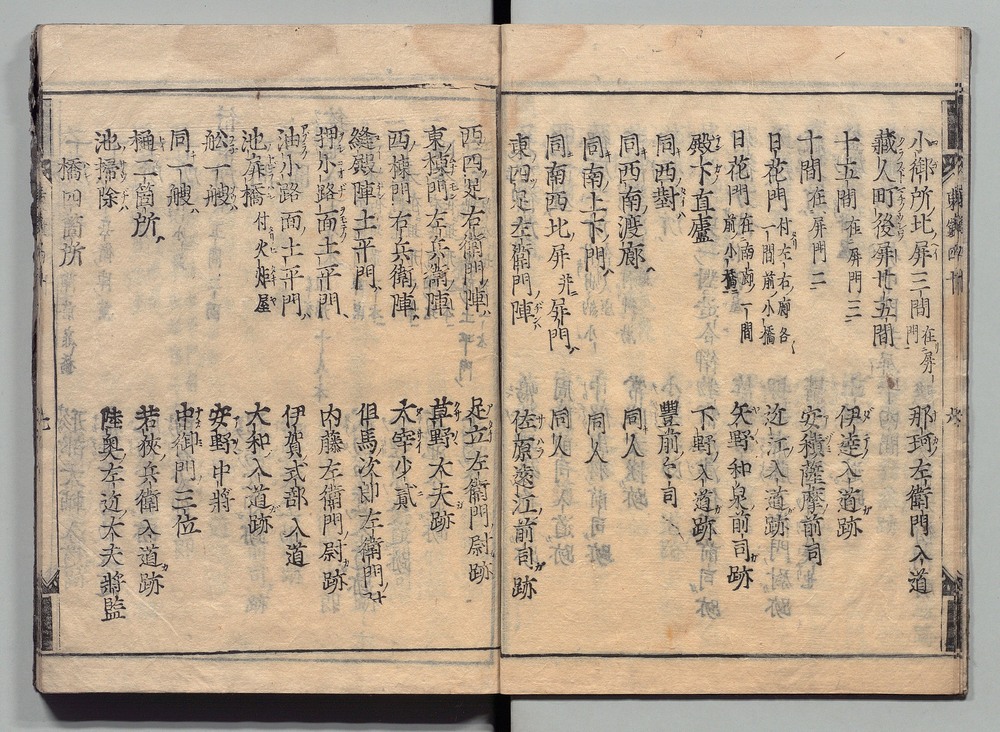 小御所北屏三間 在屏門一 那珂左衛門入道
蔵人町後屏廿五間
十五間 在屏門二三 伊達入道跡
十間 在屏門二 安積薩摩前司
日花門 付左右廊各一間前小橋 近江入道跡
日花門 在南廊一間前小橋 矢野和泉前司跡
殿下直廬 下野入道跡
同西對 豊前々司
同西南渡廊 同人
同南上下門 同人
同南西北屏并屏門 同人
東四足左衛門陣 佐原遠江前司跡
西四足右衛門陣 足立左衛門尉跡
東棟門左兵衛陣 草野大夫跡
西棟門右兵衛陣 太宰少貳
縫殿陣土平門 但馬次郎左衛門
押小路面土平門 内藤左衛門尉跡
油小路面土平門 伊賀式部入道
池庫橋 付火炬屋 大和入道跡
舩一艘 安野中將
同一艘 中御門三位
樋二箇所 若狹兵衛入道跡
池掃除 陸奥左近大夫將監
橋四箇所
七